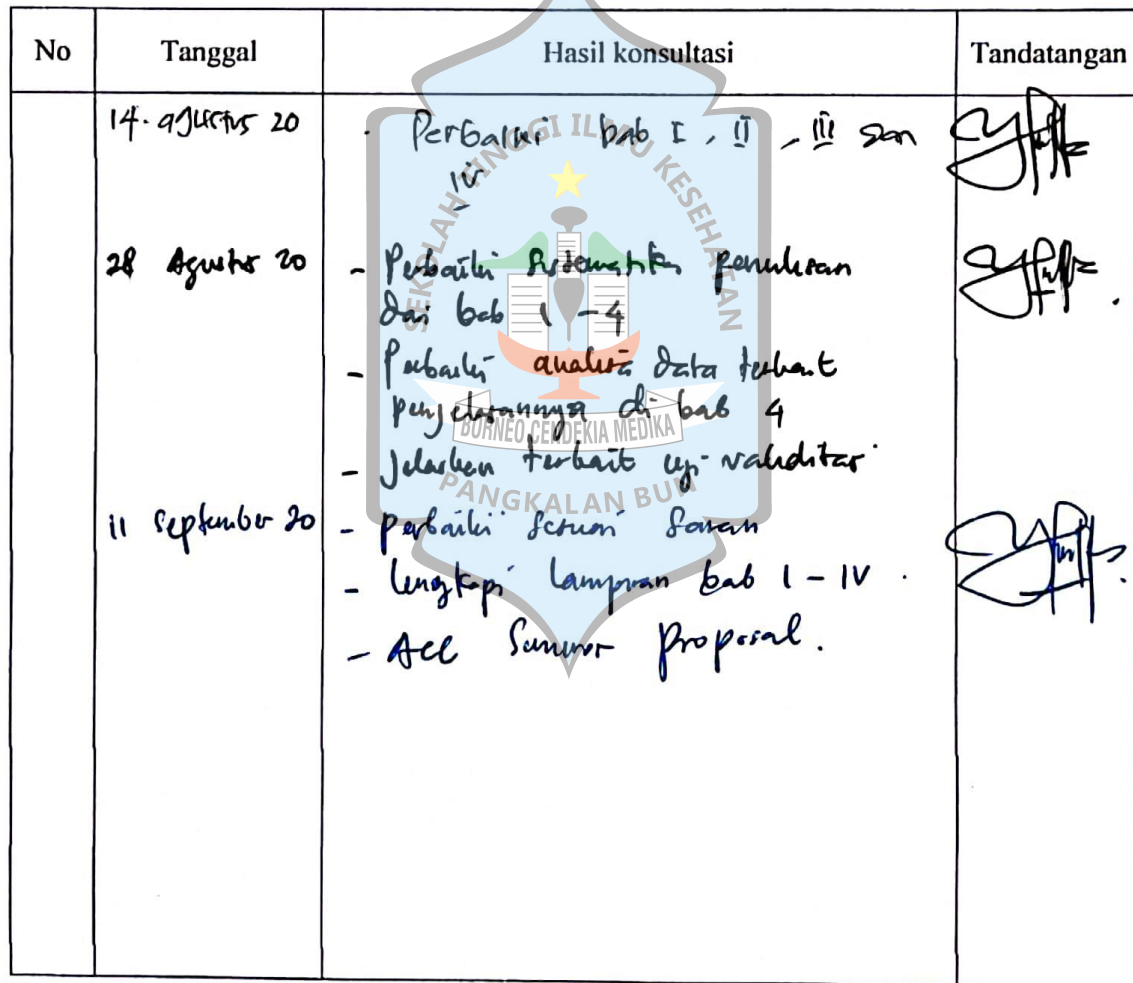 No Tanggal Hasil konsultasi Tandatangan
14. agustus 20 - Perbaiki bab I, II, III dan
IV
28 Agustus 20 - Perbaiki sistematika penulisan
dari bab 1 - 4
- Perbaiki analisa data terkait
penjelasannya di bab 4
- Jelaskan terkait uji validitas
11 September 20 - perbaiki sesuai saran
- lengkapi lampiran bab I - IV.
- Acc Seminar proposal.
SEKOLAH TINGGI ILMU KESEHATAN
BORNEO CENDEKIA MEDIKA
PANGKALAN BUN